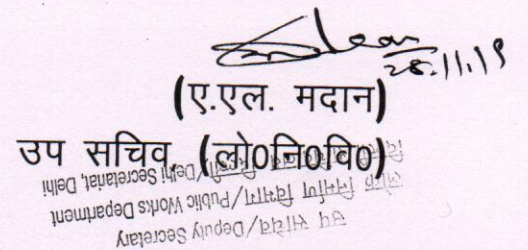 28.11.19
(ए.एल. मदान)
उप सचिव, (लो0नि0वि0)
उप सचिव/Deputy Secretary
लोक निर्माण विभाग/Public Works Department
/Delhi Secretariat, Delhi